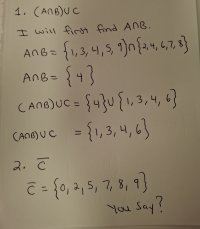 1. (A∩B)∪C
I will first find A∩B.
A∩B = {1, 3, 4, 5, 9}∩{2, 4, 6, 7, 8}
A∩B = {4}
(A∩B)∪C = {4}∪{1, 3, 4, 6}
(A∩B)∪C = {1, 3, 4, 6}
2. C̅
C̅ = {0, 2, 5, 7, 8, 9}
You Say?